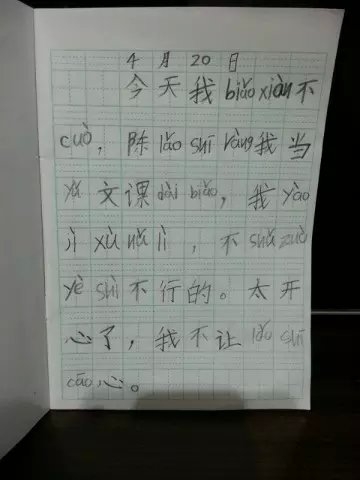 4月20日
今天我biǎo xiàn不
cuò，陈lǎo shī ràng我当
yǔ文课dài biǎo，我yào
jì xù nǔ lì，不shuǎ zuò
yè shì不行的。太开
心了，我不让lǎo shī
cāo心。